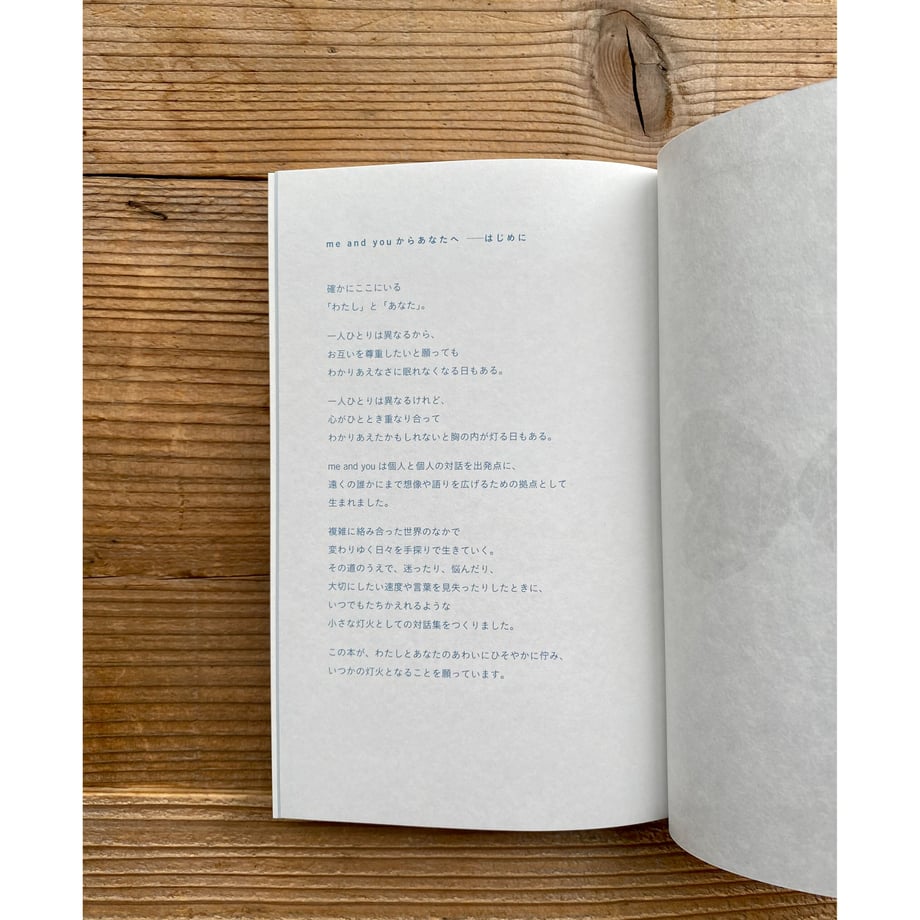 me and you からあなたへ ──はじめに
確かにここにいる
「わたし」と「あなた」。
一人ひとりは異なるから、
お互いを尊重したいと願っても
わかりあえなさに眠れなくなる日もある。
一人ひとりは異なるけれど、
心がひととき重なり合って
わかりあえたかもしれないと胸の内が灯る日もある。
me and you は個人と個人の対話を出発点に、
遠くの誰かにまで想像や語りを広げるための拠点として
生まれました。
複雑に絡み合った世界のなかで
変わりゆく日々を手探りで生きていく。
その道のうえで、迷ったり、悩んだり、
大切にしたい速度や言葉を見失ったりしたときに、
いつでもたちかえれるような
小さな灯火としての対話集をつくりました。
この本が、わたしとあなたのあわいにひそやかに佇み、
いつかの灯火となることを願っています。